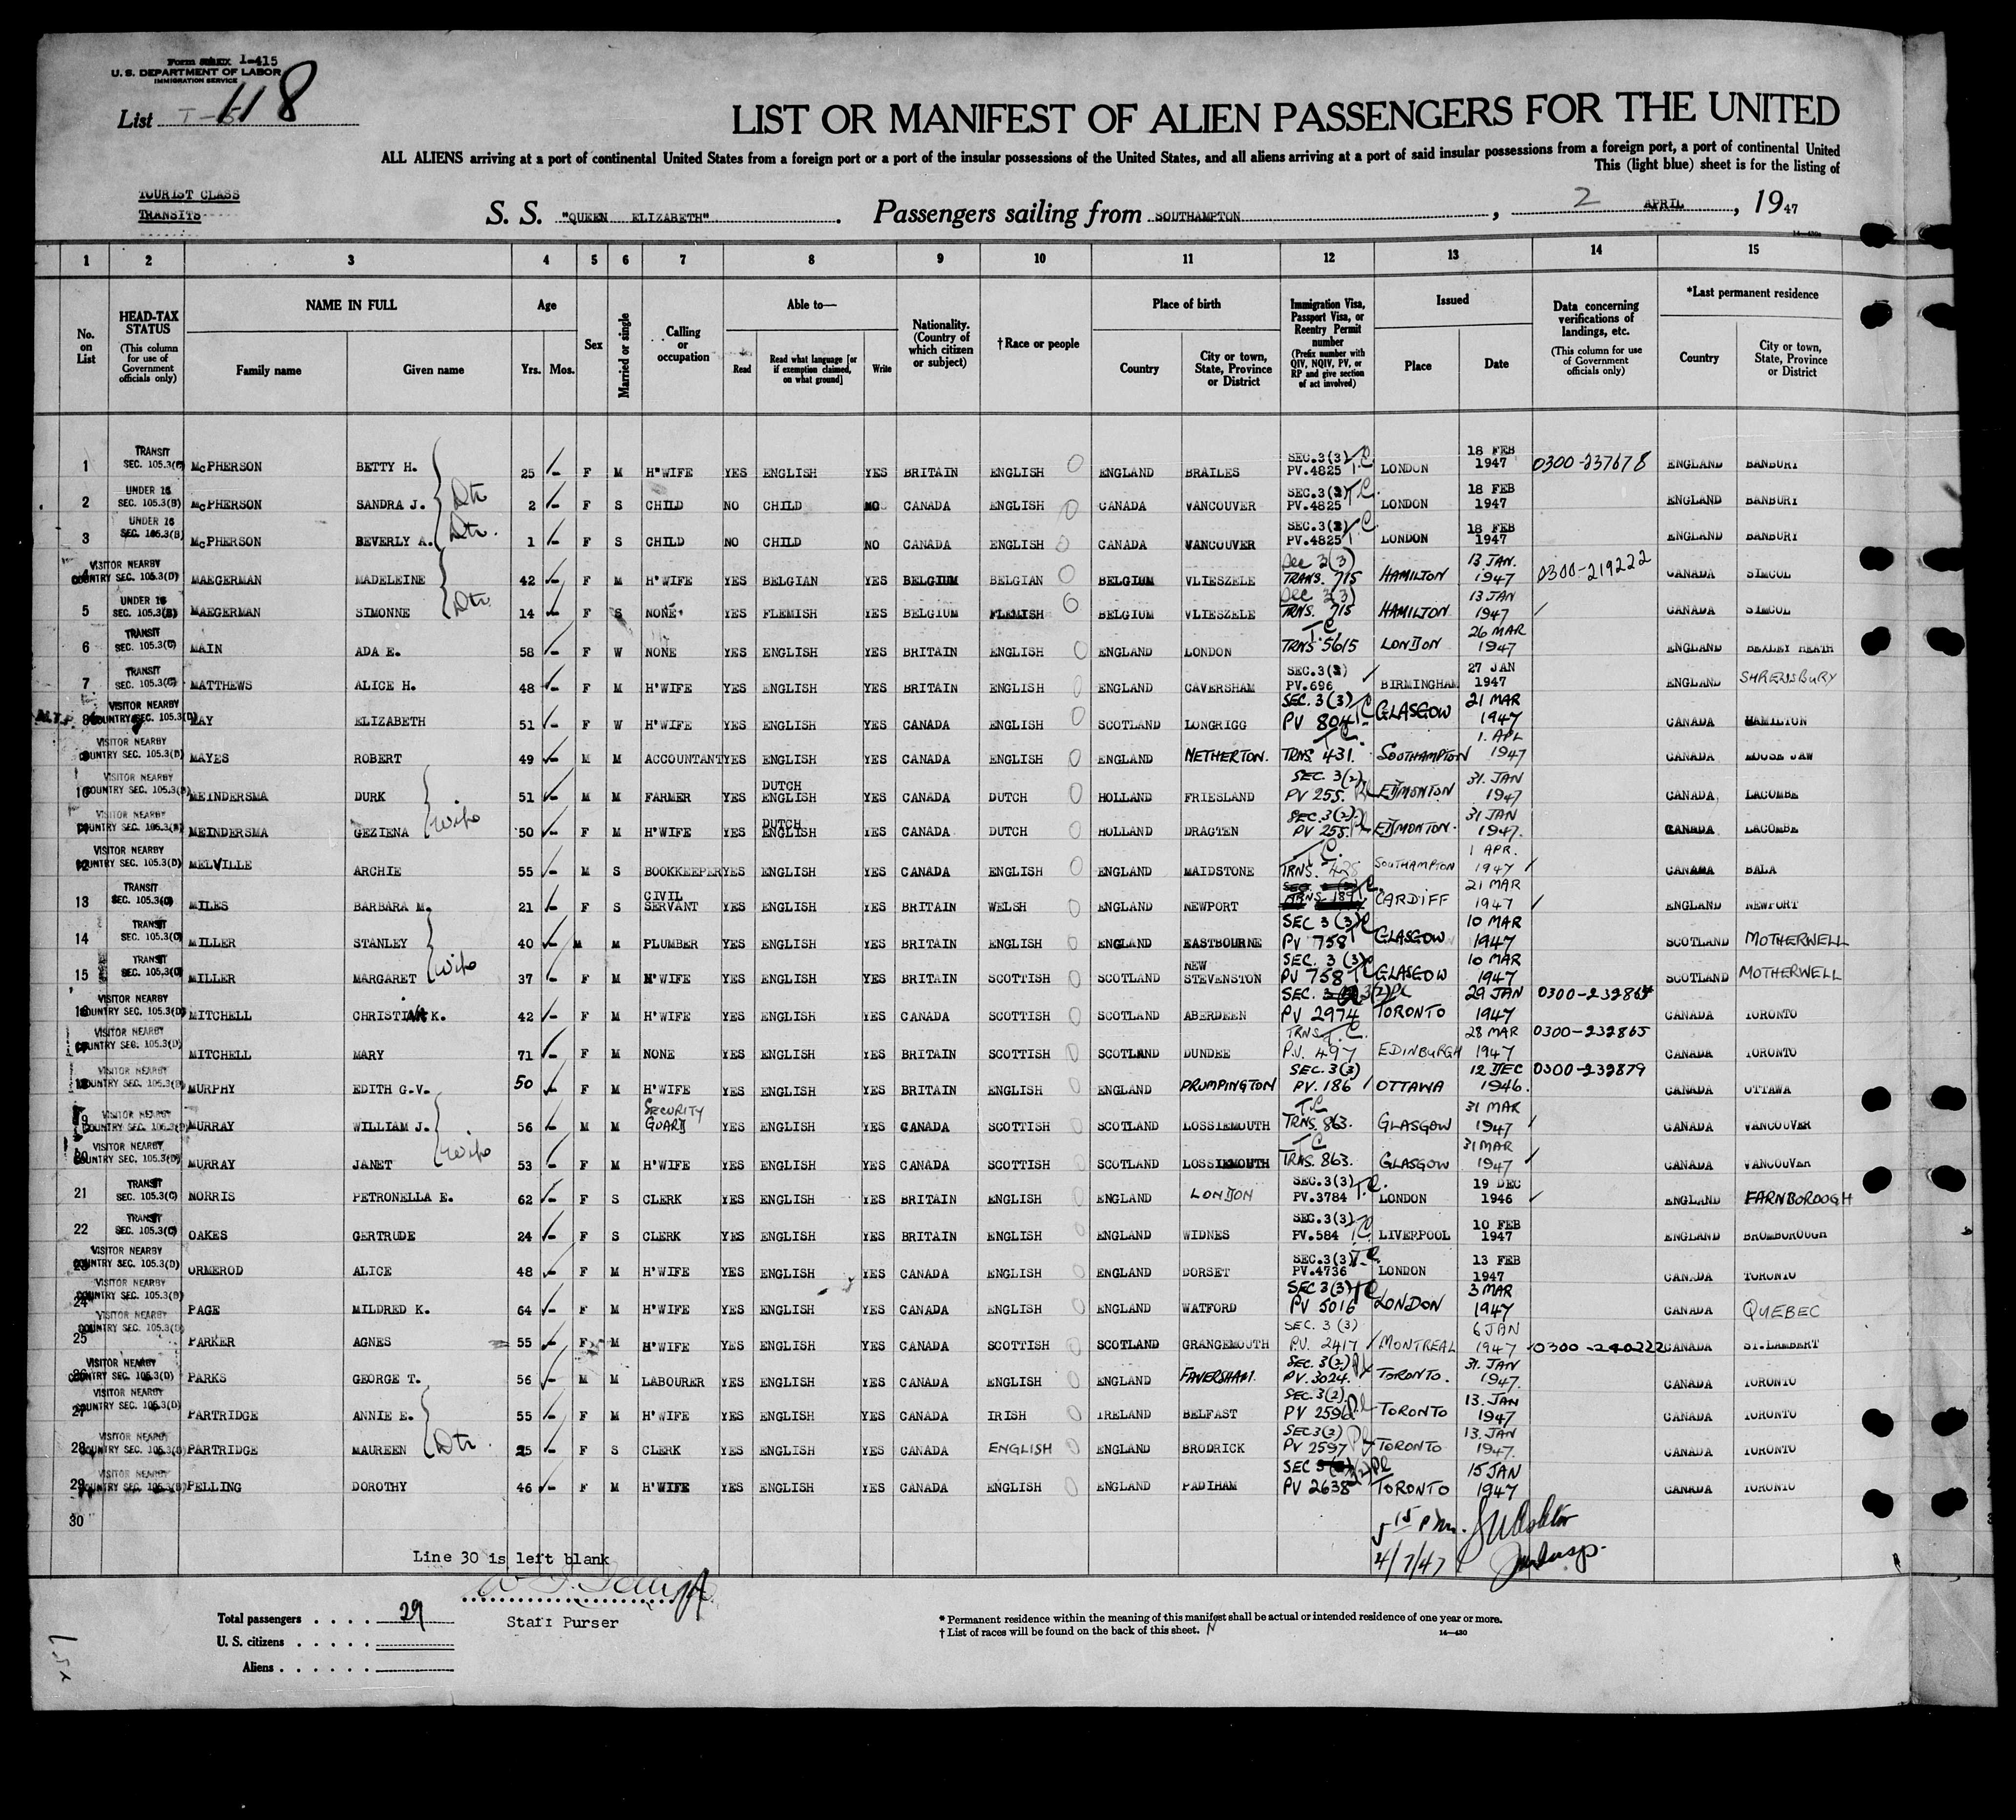 Form I-415
U. S. DEPARTMENT OF LABOR
IMMIGRATION SERVICE
List 118
LIST OR MANIFEST OF ALIEN PASSENGERS FOR THE UNITED
ALL ALIENS arriving at a port of continental United States from a foreign port or a port of the insular possessions of the United States, and all aliens arriving at a port of said insular possessions from a foreign port, a port of continental United
This (light blue) sheet is for the listing of
TOURIST CLASS
TRANSITS
S. S. "QUEEN ELIZABETH" . Passengers sailing from SOUTHAMPTON , 2 APRIL , 1947
1 2 3 4 5 6 7 8 9 10 11 12 13 14 15
No. on List
HEAD-TAX STATUS (This column for use of Government officials only)
NAME IN FULL Family name Given name
Age Yrs. Mos.
Sex
Married or single
Calling or occupation
Able to— Read Read what language [or if exemption claimed, on what ground] Write
Nationality. (Country of which citizen or subject)
† Race or people
Place of birth Country City or town, State, Province or District
Immigration Visa, Passport Visa, or Reentry Permit number (Prefix number with QIV, NQIV, PV, or RP and give section of act involved)
Issued Place Date
Data concerning verifications of landings, etc. (This column for use of Government officials only)
*Last permanent residence Country City or town, State, Province or District
1 TRANSIT SEC. 105.3(C) McPHERSON BETTY H. 25 F M H'WIFE YES ENGLISH YES BRITAIN ENGLISH ENGLAND BRAILES SEC.3(3) PV.4825 T.C. LONDON 18 FEB 1947 0300-237678 ENGLAND BANBURY
2 UNDER 16 SEC. 105.3(B) McPHERSON SANDRA J. Dtr 2 F S CHILD NO CHILD NO CANADA ENGLISH CANADA VANCOUVER SEC.3(3) T.C. PV.4825 LONDON 18 FEB 1947 ENGLAND BANBURY
3 UNDER 16 SEC. 105.3(B) McPHERSON BEVERLY A. Dtr. 1 F S CHILD NO CHILD NO CANADA ENGLISH CANADA VANCOUVER SEC.3(3) T.C. PV.4825 LONDON 18 FEB 1947 ENGLAND BANBURY
4 VISITOR NEARBY COUNTRY SEC. 105.3(D) MAEGERMAN MADELEINE 42 F M H'WIFE YES BELGIAN YES BELGIUM BELGIAN BELGIUM VLIESZELE Sec 3(3) TRANS. 715 HAMILTON 13 JAN. 1947 0300-219222 CANADA SIMCOL
5 UNDER 16 SEC. 105.3(B) MAEGERMAN SIMONNE Dtr. 14 F S NONE YES FLEMISH YES BELGIUM FLEMISH BELGIUM VLIESZELE Sec 3(3) TRNS. 715 HAMILTON 13 JAN 1947 CANADA SIMCOL
6 TRANSIT SEC. 105.3(C) MAIN ADA E. 58 F W NONE YES ENGLISH YES BRITAIN ENGLISH ENGLAND LONDON T.C. TRNS 5615 LONDON 26 MAR 1947 ENGLAND BEXLEY HEATH
7 TRANSIT SEC. 105.3(C) MATTHEWS ALICE H. 48 F M H'WIFE YES ENGLISH YES BRITAIN ENGLISH ENGLAND CAVERSHAM SEC.3(3) PV.696 BIRMINGHAM 27 JAN 1947 ENGLAND SHREWSBURY
8 VISITOR NEARBY COUNTRY SEC. 105.3(D) MAY ELIZABETH 51 F W H'WIFE YES ENGLISH YES CANADA ENGLISH SCOTLAND LONGRIGG SEC. 3(3) T.C. PV 804 GLASGOW 21 MAR 1947 CANADA HAMILTON
9 VISITOR NEARBY COUNTRY SEC. 105.3(D) MAYES ROBERT 49 M M ACCOUNTANT YES ENGLISH YES CANADA ENGLISH ENGLAND NETHERTON. T.C. TRNS. 431. SOUTHAMPTON 1. APL 1947 CANADA MOOSE JAW
10 VISITOR NEARBY COUNTRY SEC. 105.3(D) MEINDERSMA DURK 51 M M FARMER YES DUTCH ENGLISH YES CANADA DUTCH HOLLAND FRIESLAND SEC. 3(2) PV 255. EDMONTON 31. JAN 1947 CANADA LACOMBE
11 VISITOR NEARBY COUNTRY SEC. 105.3(D) MEINDERSMA GEZIENA Wife 50 F M H'WIFE YES DUTCH ENGLISH YES CANADA DUTCH HOLLAND DRAGTEN SEC. 3(2) PV 255. EDMONTON. 31 JAN 1947. CANADA LACOMBE
12 VISITOR NEARBY COUNTRY SEC. 105.3(D) MELVILLE ARCHIE 55 M S BOOKKEEPER YES ENGLISH YES CANADA ENGLISH ENGLAND MAIDSTONE T.C. TRNS. 428 SOUTHAMPTON 1 APR. 1947 CANADA BALA
13 TRANSIT SEC. 105.3(C) MILES BARBARA M. 21 F S CIVIL SERVANT YES ENGLISH YES BRITAIN WELSH ENGLAND NEWPORT TRNS 189 T.C. CARDIFF 21 MAR 1947 ENGLAND NEWPORT
14 TRANSIT SEC. 105.3(C) MILLER STANLEY 40 M M PLUMBER YES ENGLISH YES BRITAIN ENGLISH ENGLAND EASTBOURNE SEC 3(3) PV 758 GLASGOW 10 MAR 1947 SCOTLAND MOTHERWELL
15 TRANSIT SEC. 105.3(C) MILLER MARGARET Wife 37 F M H'WIFE YES ENGLISH YES BRITAIN SCOTTISH SCOTLAND NEW STEVENSTON SEC. 3(3) PV 758 T.C. GLASGOW 10 MAR 1947 SCOTLAND MOTHERWELL
16 VISITOR NEARBY COUNTRY SEC. 105.3(D) MITCHELL CHRISTINA K. 42 F M H'WIFE YES ENGLISH YES CANADA SCOTTISH SCOTLAND ABERDEEN SEC. 3(2) PV 2974 TORONTO 29 JAN 1947 0300-232864 CANADA TORONTO
17 VISITOR NEARBY COUNTRY SEC. 105.3(D) MITCHELL MARY 71 F M NONE YES ENGLISH YES BRITAIN SCOTTISH SCOTLAND DUNDEE TRNS T.C. P.V. 497 EDINBURGH 28 MAR 1947 0300-232865 CANADA TORONTO
18 VISITOR NEARBY COUNTRY SEC. 105.3(D) MURPHY EDITH G.V. 50 F M H'WIFE YES ENGLISH YES BRITAIN ENGLISH ENGLAND PRUMPINGTON SEC. 3(3) PV. 186 OTTAWA 12 DEC 1946. 0300-232879 CANADA OTTAWA
19 VISITOR NEARBY COUNTRY SEC. 105.3(D) MURRAY WILLIAM J. 56 M M SECURITY GUARD YES ENGLISH YES CANADA SCOTTISH SCOTLAND LOSSIEMOUTH T.C. TRNS. 863. GLASGOW 31 MAR 1947 CANADA VANCOUVER
20 VISITOR NEARBY COUNTRY SEC. 105.3(D) MURRAY JANET Wife 53 F M H'WIFE YES ENGLISH YES CANADA SCOTTISH SCOTLAND LOSSIEMOUTH T.C. TRNS. 863. GLASGOW 31 MAR 1947 CANADA VANCOUVER
21 TRANSIT SEC. 105.3(C) NORRIS PETRONELLA E. 62 F S CLERK YES ENGLISH YES BRITAIN ENGLISH ENGLAND LONDON SEC.3(3) T.C. PV.3784 LONDON 19 DEC 1946 ENGLAND FARNBOROOGH
22 TRANSIT SEC. 105.3(C) OAKES GERTRUDE 24 F S CLERK YES ENGLISH YES BRITAIN ENGLISH ENGLAND WIDNES SEC.3(3) T.C. PV.584 LIVERPOOL 10 FEB 1947 ENGLAND BROMBOROUGH
23 VISITOR NEARBY COUNTRY SEC. 105.3(D) ORMEROD ALICE 48 F M H'WIFE YES ENGLISH YES CANADA ENGLISH ENGLAND DORSET SEC.3(3) T.C. PV.4736 LONDON 13 FEB 1947 CANADA TORONTO
24 VISITOR NEARBY COUNTRY SEC. 105.3(D) PAGE MILDRED K. 64 F M H'WIFE YES ENGLISH YES CANADA ENGLISH ENGLAND WATFORD SEC 3(3) T.C. PV 5016 LONDON 3 MAR 1947 CANADA QUEBEC
25 VISITOR NEARBY COUNTRY SEC. 105.3(D) PARKER AGNES 55 F M H'WIFE YES ENGLISH YES CANADA SCOTTISH SCOTLAND GRANGEMOUTH SEC. 3(3) P.V. 2417 MONTREAL 6 JAN 1947 0300-240222 CANADA ST.LAMBERT
26 VISITOR NEARBY COUNTRY SEC. 105.3(D) PARKS GEORGE T. 56 M M LABOURER YES ENGLISH YES CANADA ENGLISH ENGLAND FAVERSHAM. SEC. 3(2) PV. 3024. TORONTO. 31. JAN 1947. CANADA TORONTO
27 VISITOR NEARBY COUNTRY SEC. 105.3(D) PARTRIDGE ANNIE E. 55 F M H'WIFE YES ENGLISH YES CANADA IRISH IRELAND BELFAST SEC. 3(2). PV 2596 TORONTO 13. JAN 1947 CANADA TORONTO
28 VISITOR NEARBY COUNTRY SEC. 105.3(D) PARTRIDGE MAUREEN Dtr. 25 F S CLERK YES ENGLISH YES CANADA ENGLISH ENGLAND BRODRICK SEC 3(2) PV 2597 TORONTO 13. JAN 1947. CANADA TORONTO
29 VISITOR NEARBY COUNTRY SEC. 105.3(D) PELLING DOROTHY 46 F M H'WIFE YES ENGLISH YES CANADA ENGLISH ENGLAND PADIHAM SEC 3(2) PV 2638 TORONTO 15 JAN 1947 CANADA TORONTO
30
5 15 pm.
4/7/47
Line 30 is left blank
Staff Purser
Total passengers . . . . 29
U. S. citizens . . . . .
Aliens . . . . . .
* Permanent residence within the meaning of this manifest shall be actual or intended residence of one year or more.
† List of races will be found on the back of this sheet.
14—430